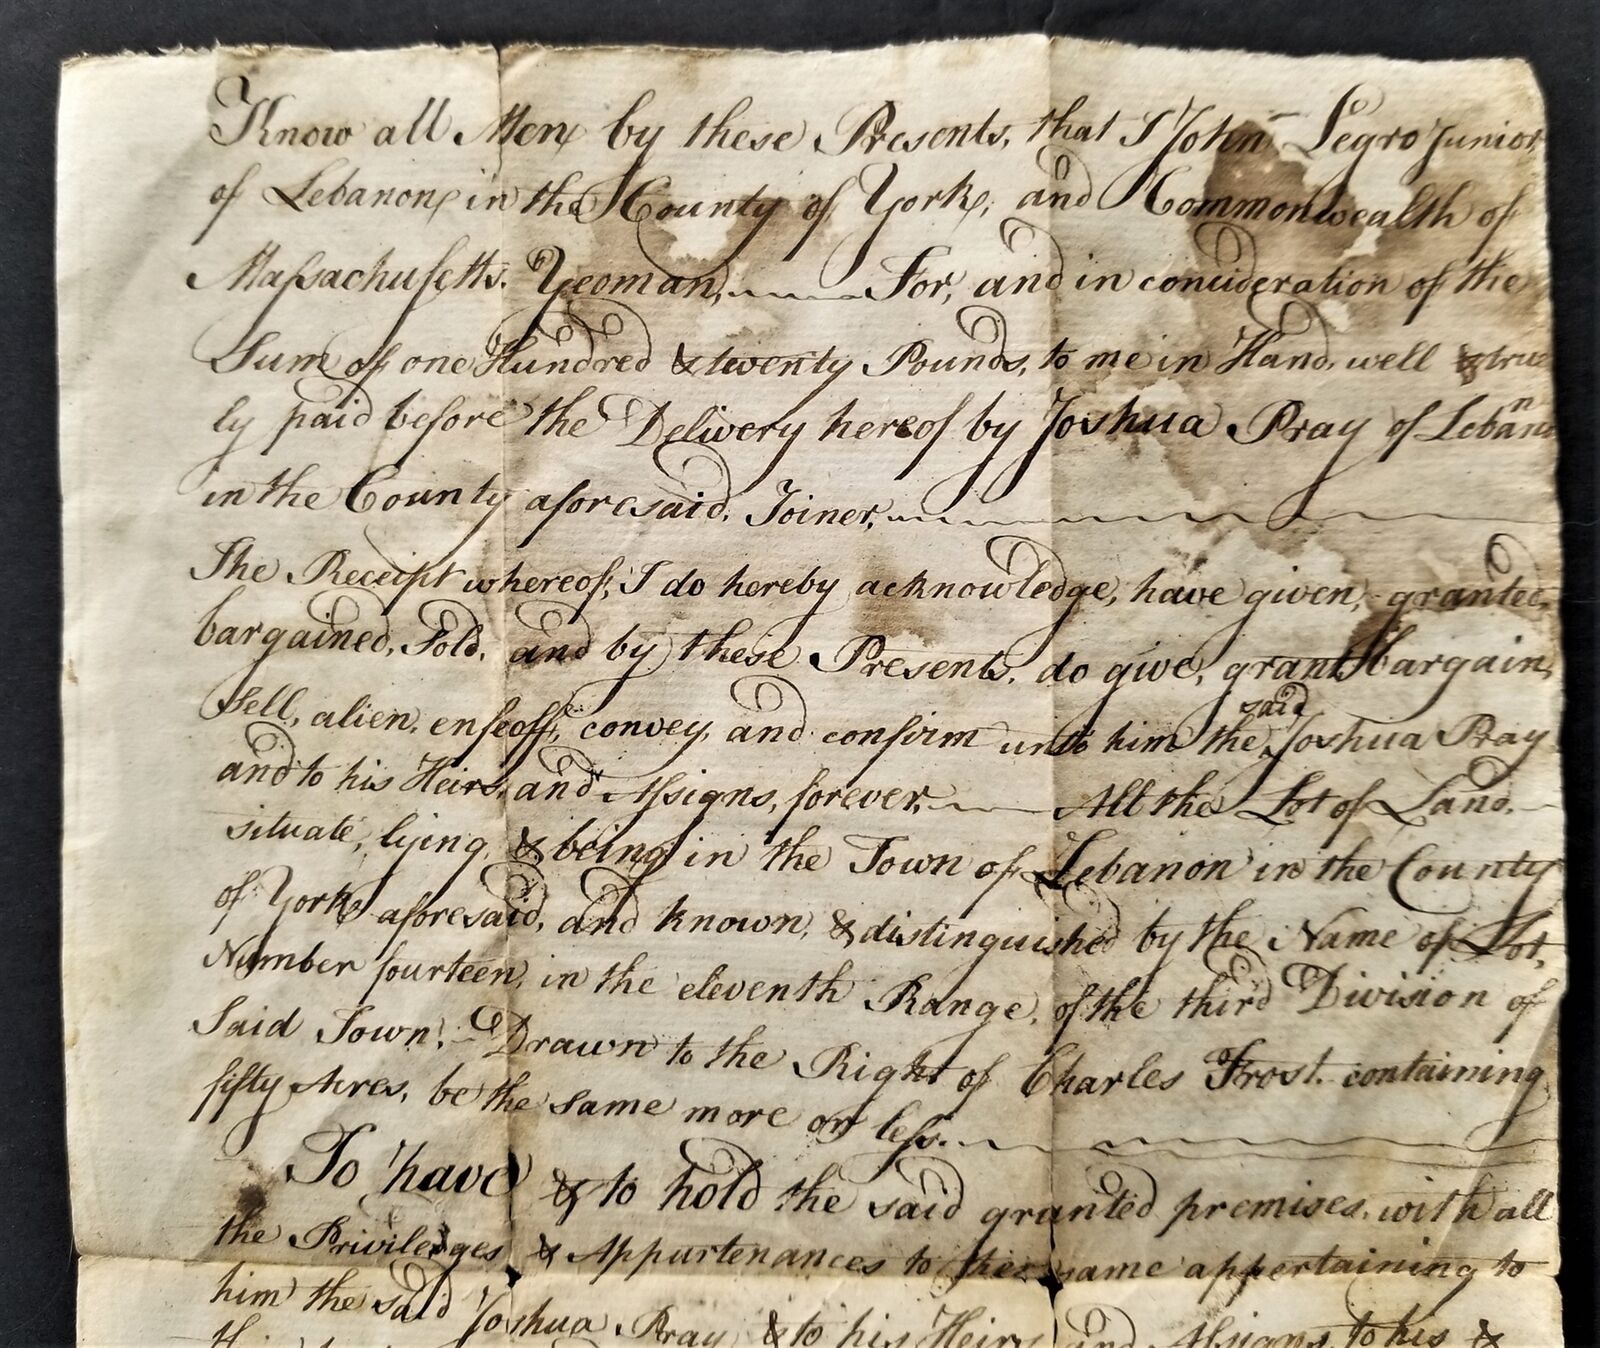 Know all Men by these Presents, that I John Legro Junior,
of Lebanon, in the County of York, and Commonwealth of
Massachusetts, Yeoman, For, and in consideration of the
Sum of one Hundred & twenty Pounds, to me in Hand, well & true
ly paid before the Delivery hereof by Joshua Pray of Lebanon
in the County aforesaid, Joiner,
The Receipt whereof, I do hereby acknowledge, have given, granted,
bargained, Sold, and by these Presents, do give, grant, bargain,
Sell, alien, enfeoff, convey, and confirm unto him the said Joshua Pray
and to his Heirs, and Assigns, forever, All the Lot of Land,
situate, lying, & being in the Town of Lebanon in the County
of York aforesaid, and known, & distinguished by the Name of Lot,
Number fourteen, in the eleventh Range, of the third Division of
Said Town, Drawn to the Right of Charles Frost, containing
fifty Acres, be the same more or less.
To have & to hold the said granted premises, with all
the Priviledges & Appurtenances to the same appertaining to
him the said Joshua Pray & to his Heirs and Assigns, to his &